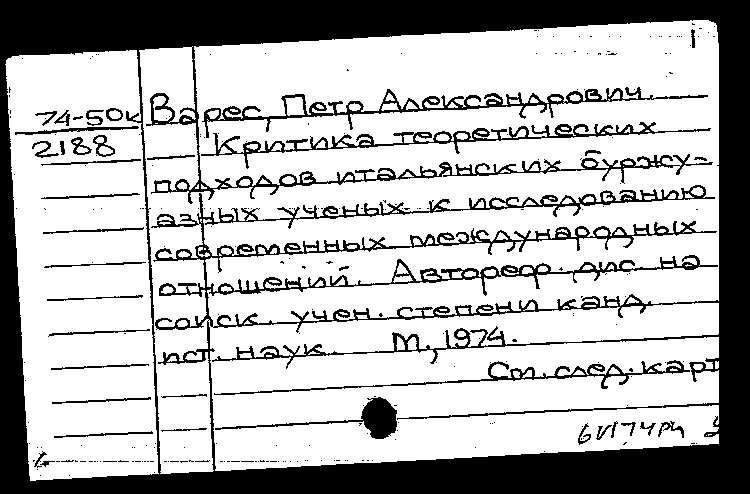 74-50к Варес, Петр Александрович.
2188 Критика теоретических
подходов итальянских буржу-
азных ученых к исследованию
современных международных
отношений. Автореф. дис. на
соиск. учен. степени канд.
ист. наук. М., 1974.
См. след. карт